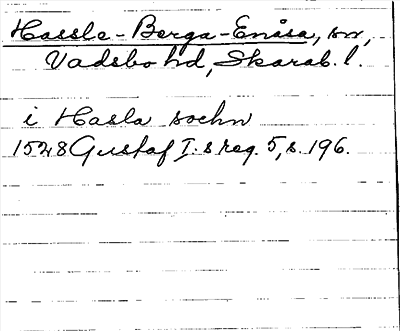 Hassle-Berga-Enåsa, sn,
Vadsbo hd, Skarab. l.
i Hasla sochn
1528 Gustaf I:s reg. 5, s. 196.